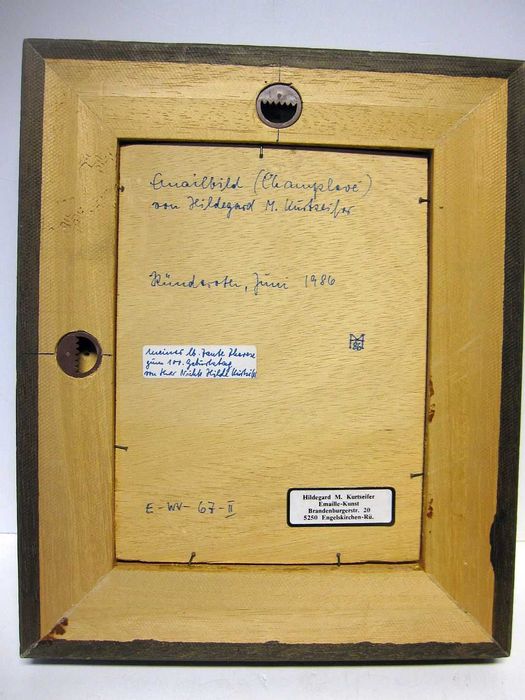 Emailbild (Champlevé)
von Hildegard M. Kurtseifer
Ründeroth, Juni 1986
meiner lb. Tante Therese
zum 100. Geburtstag
von Ihrer Nichte Hilde Kurtseifer
E-WV-67-II
Hildegard M. Kurtseifer
Emaille-Kunst
Brandenburgerstr. 20
5250 Engelskirchen-Rü.